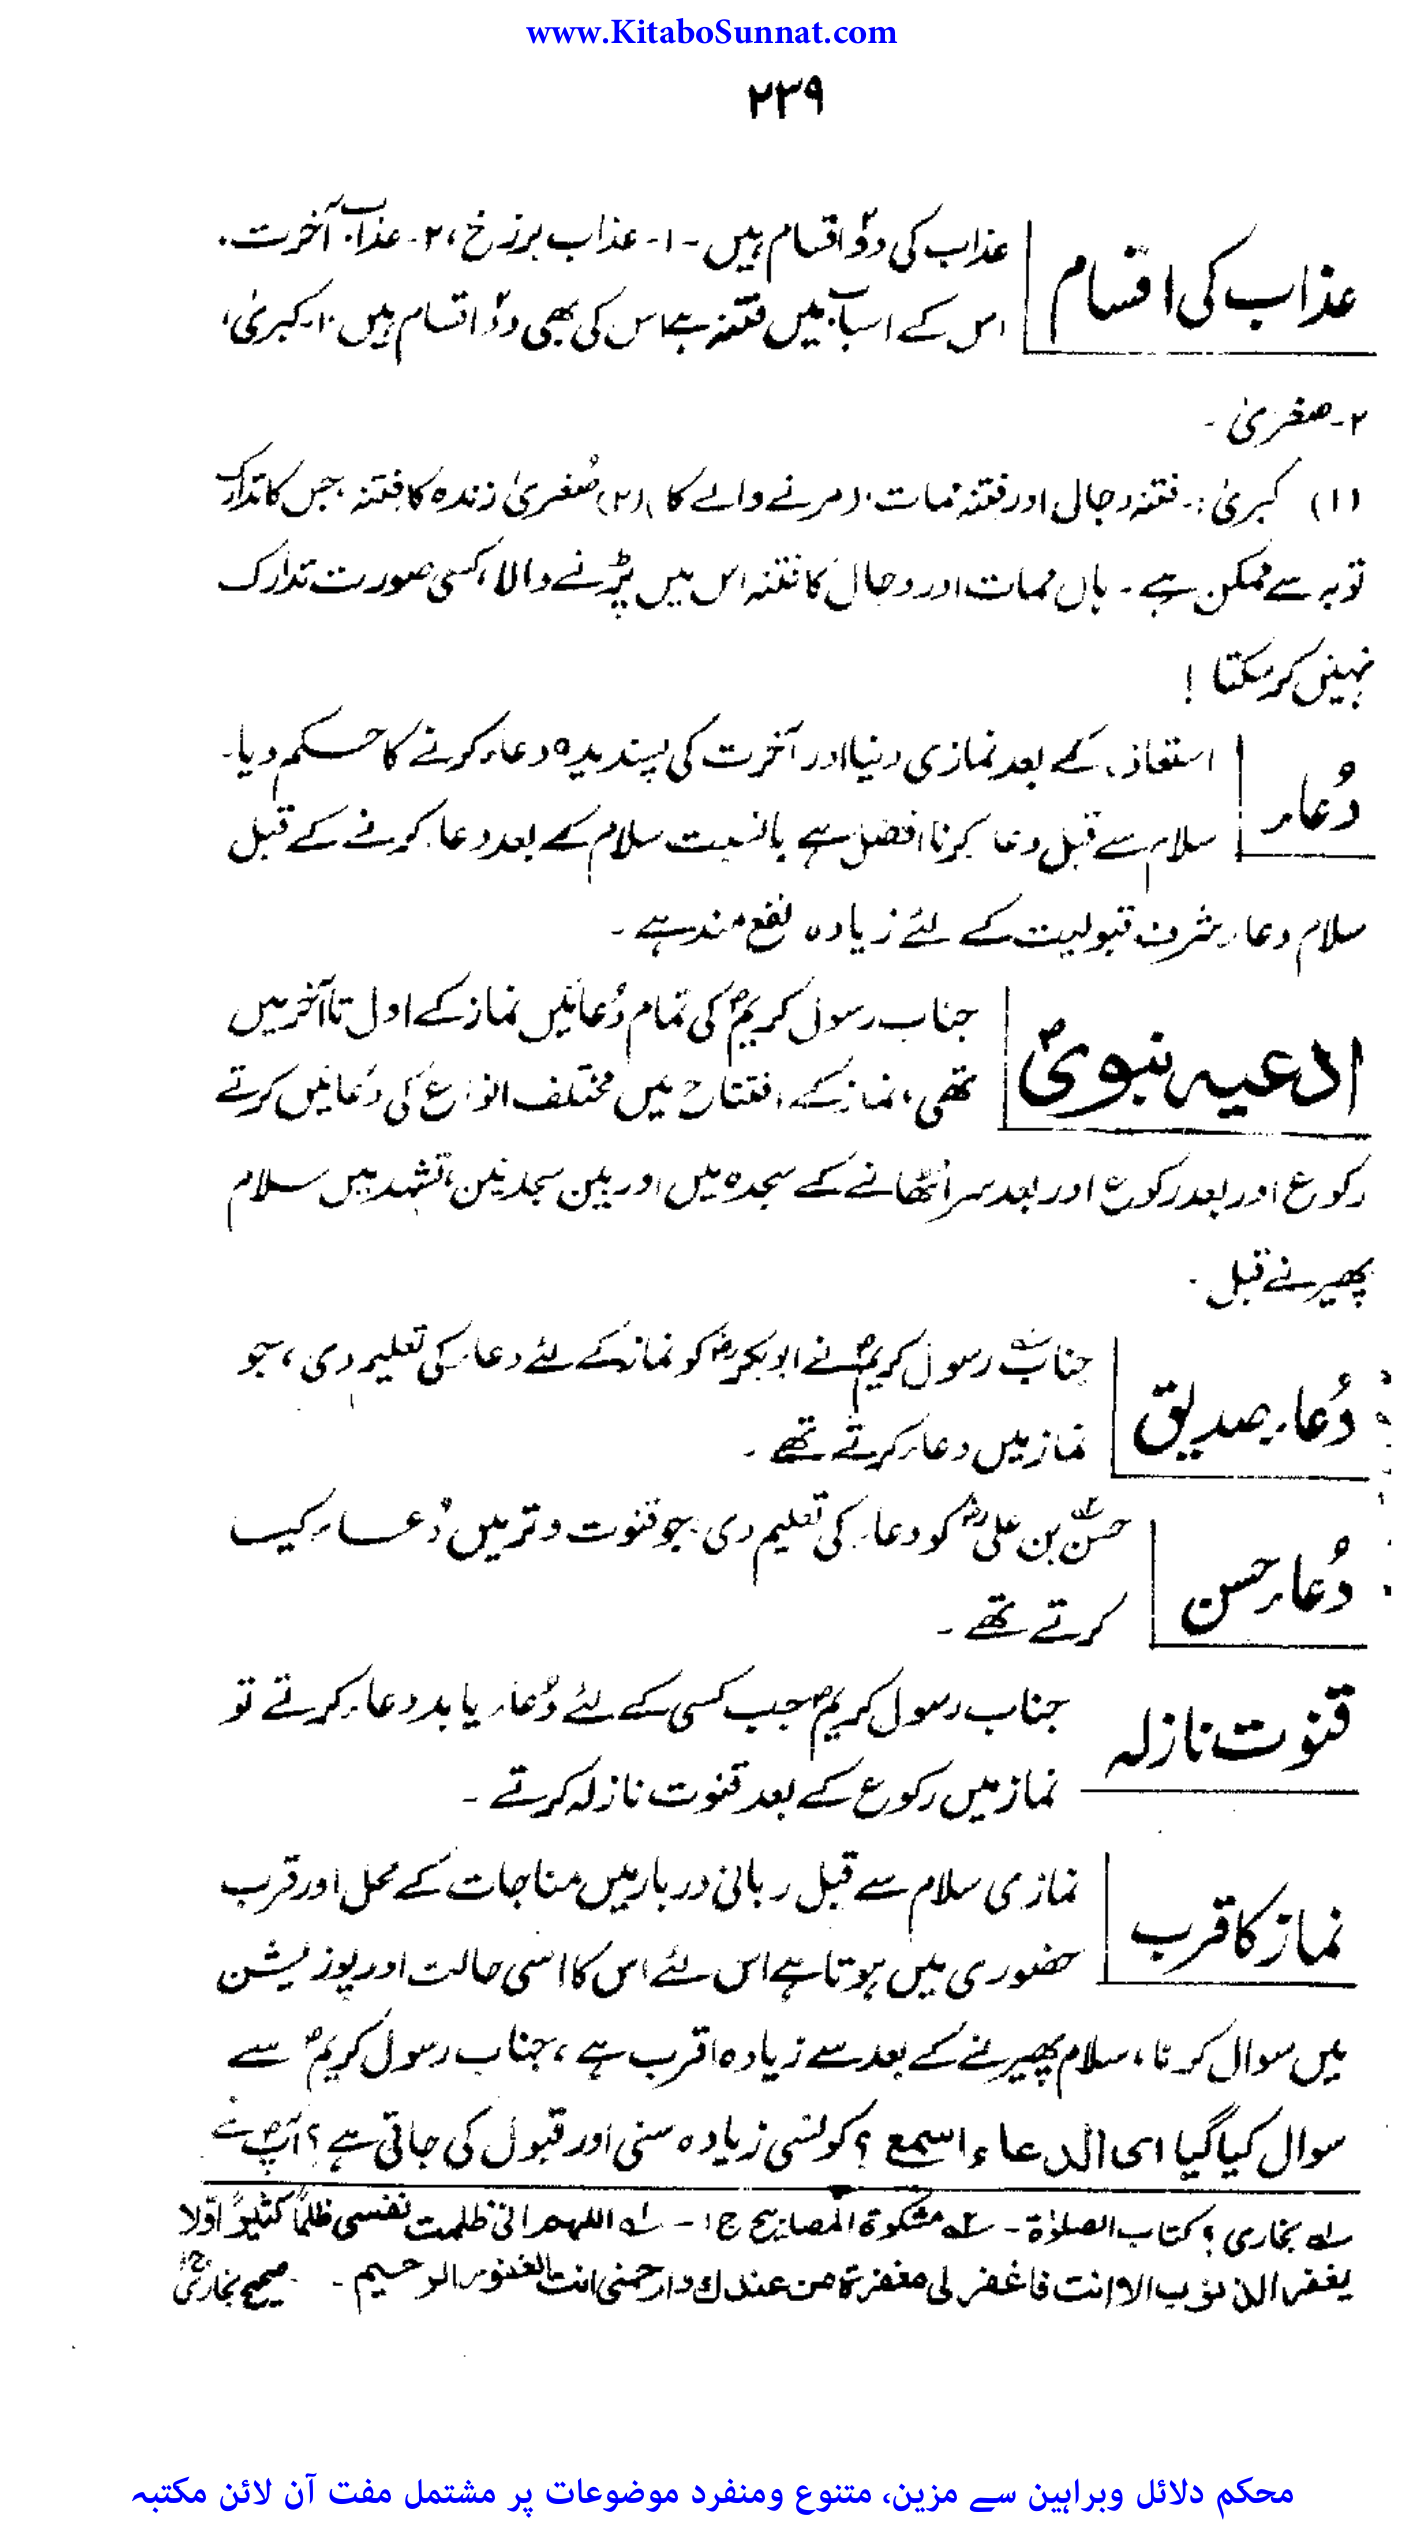 www.KitaboSunnat.com
۲۳۹
عذاب کی اقسام
عذاب کی دو اقسام ہیں ۔ ۱۔ عذاب برزخ، ۲۔ عذاب آخرت ۔
اس کے اسباب میں فتنہ ہے اس کی بھی دو اقسام ہیں ۔ ۱۔ کبریٰ،
۲۔ صغریٰ ۔
(۱) کبریٰ :۔ فتنہ دجال اور فتنہ ممات (مرنے والے کا)، (۲) صُغریٰ زندہ کا فتنہ جس کا تدارک
توبہ سے ممکن ہے ۔ ہاں ممات اور دجال کا فتنہ اس میں پڑنے والا، کسی صورت تدارک
نہیں کر سکتا !
دُعاء
استعاذہ کے بعد نمازی دنیا اور آخرت کی پسندیدہ دعاء کرنے کا حکم دیا۔
سلام سے قبل دعا کرنا افضل ہے بالنسبت سلام کے بعد دعا کرنے کے قبل
سلام دعاء شرف قبولیت کے لئے زیادہ نفع مند ہے ۔
ادعیہ نبویؐ
جناب رسول کریمؐ کی تمام دُعائیں نماز کے اول تا آخر میں
تھی، نماز کے افتتاح میں مختلف انواع کی دُعائیں کرتے
رکوع اور بعد رکوع اور بعد سر اُٹھانے کے سجدہ میں اور بین سجدتین، تشہد میں سلام
پھیرنے قبل ۔
دُعاء صدیق
جناب رسول کریمؐ نے ابوبکرؓ کو نماز کے لئے دعاء کی تعلیم دی، جو
نماز میں دعاء کرتے تھے ۔
دُعاء حسن
حسنؓ بن علیؓ کو دعاء کی تعلیم دی جو قنوت وتر میں دُعاء کیا
کرتے تھے ۔
قنوت نازلہ
جناب رسول کریمؐ جب کسی کے لئے دُعاء یا بددعاء کرتے تو
نماز میں رکوع کے بعد قنوت نازلہ کرتے ۔
نماز کا قرب
نمازی سلام سے قبل ربانی دربار میں مناجات کے محل اور قرب
حضوری میں ہوتا ہے اس لئے اس کا اسی حالت اور پوزیشن
میں سوال کرنا، سلام پھیرنے کے بعد سے زیادہ اقرب ہے، جناب رسول کریمؐ سے
سوال کیا گیا ای الدعاء اسمع ؟ کونسی زیادہ سنی اور قبول کی جاتی ہے؟ آپؐ نے
۱ه بخاری ؟ کتاب الصلوٰة ۔ ۲ه مشکوة المصابیح ج۱ ۔ ۱ه اللهم انی ظلمت نفسی ظلماً کثیراً ولا
یغفر الذنوب الا انت فاغفر لی مغفرة من عندك وارحمنی انت الغفور الرحیم ۔ صحیح بخاری ج۱
محکم دلائل وبراہین سے مزین، متنوع ومنفرد موضوعات پر مشتمل مفت آن لائن مکتبہ